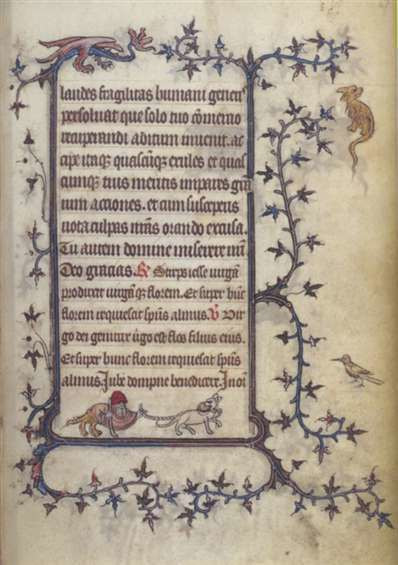 laudes fragilitas humani generis
persoluat que solo tuo comercio
recuperandi aditum inuenit. ac
cipe itaque quascumque exiles et quas
cumque tuis meritis impares gra
tiarum acciones. et cum susceperis
uota culpas nostras orando excusa.
Tu autem domine miserere nostri
Deo gracias. R Stirps iesse uirgam
produxit uirgaque florem. Et super hunc
florem requiescat spiritus almus. V Vir
go dei genitrix uirgo est flos filius eius.
Et super hunc florem requiescat spiritus
almus. Iube dompne benedicere. In omni